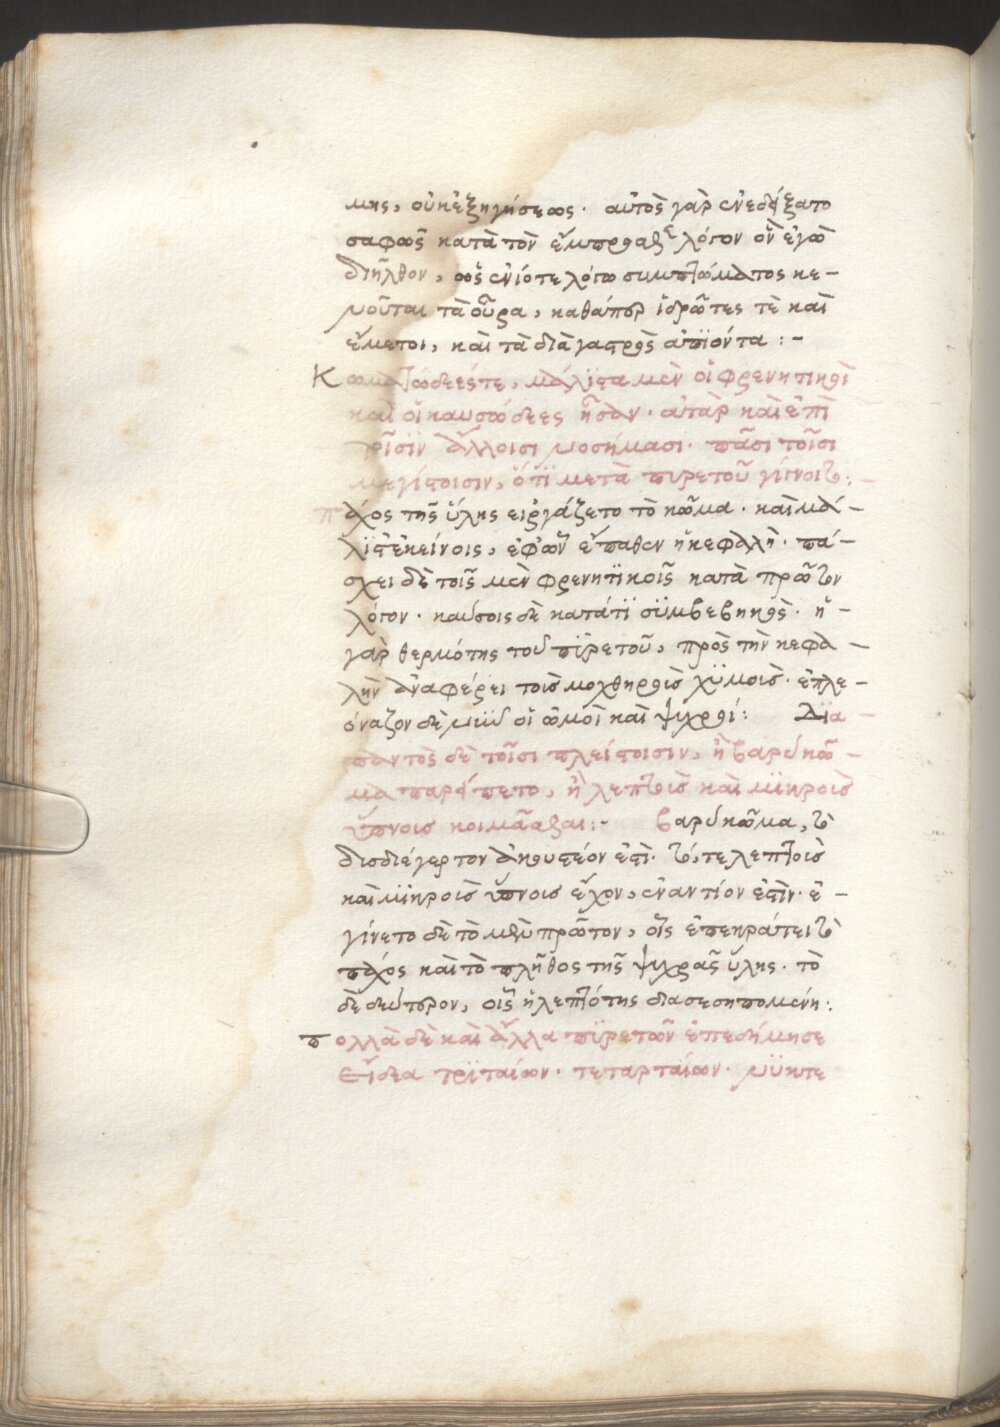 μης, οὐκ ἐξηγήσεως· αὐτὸς γὰρ ἐνεδείξατο
σαφῶς κατὰ τὸν ἔμπροσθεν λόγον ὃν ἐγὼ
διῆλθον, ὡς ἐνίοτε λόγω συμπτώματος κε-
νοῦται τὰ οὖρα, καθάπερ ἱδρῶτες τὲ καὶ
ἔμετοι, καὶ τὰ διὰ γαστρὸς ἀπϊόντα :-
Κωματώδεές τε, μάλϊστα μὲν οἱ φρενητικοὶ
καὶ οἱ καυσώδεες ἦσαν· ἀτὰρ καὶ ἐπὶ
τοῖσϊν ἄλλοισι νοσήμασι· πᾶσι τοῖσι
μεγίστοισιν, ὅτϊ μετὰ πυρετοῦ γίνοιτο: -
πάχος τῆς ὕλης εἰργάζετο τὸ κῶμα· καὶ μά-
λϊστ' ἐκείνοις, ἐφ' ὧν ἔπαθεν ἡ κεφαλὴ· πά-
σχει δὲ τοῖς μὲν φρενητϊκοῖς κατὰ πρῶτον
λόγον· καύσοις δὲ κατά τϊ συμβεβηκὸς· ἡ -
γὰρ θερμότης τοῦ πϋρετοῦ, πρὸς τὴν κεφα -
λὴν ἀναφέρει τοῖς μοχθηροῖς χϋμοῖς· ἐπλε-
όναζον δὲ νῦν οἱ ὠμοὶ καὶ ψυχροί: Δϊα -
παντὸς δὲ τοῖσι πλείστοισιν, ἢ βαρὺ κῶ -
μα παρείπετο, ἢ λεπτοῖς καὶ μϊκροῖς
ὕπνοις κοιμᾶσθαι:- βαρὺ κῶμα, τὸ
δυσδιέγερτον ἀκουστέον ἐστὶ· τό, τε λεπτοῖς
καὶ μϊκροῖς ὕπνοις ἔχον, ἐναντίον ἐστὶν· ἐ -
γίνετο δὲ τὸ μὲν πρῶτον, οἷς ἐπεκράτει τὸ
πάχος καὶ τὸ πλῆθος τῆς ψυχρᾶς ὕλης· τὸ
δὲ δεύτερον, οἷς ἡ λεπτότης διασεσηπομένη:
πολλὰ δὲ καὶ ἄλλα πϋρετῶν ἐπεδήμησε
εἴδεα τρϊταίων· τεταρταίων· νϋκτε